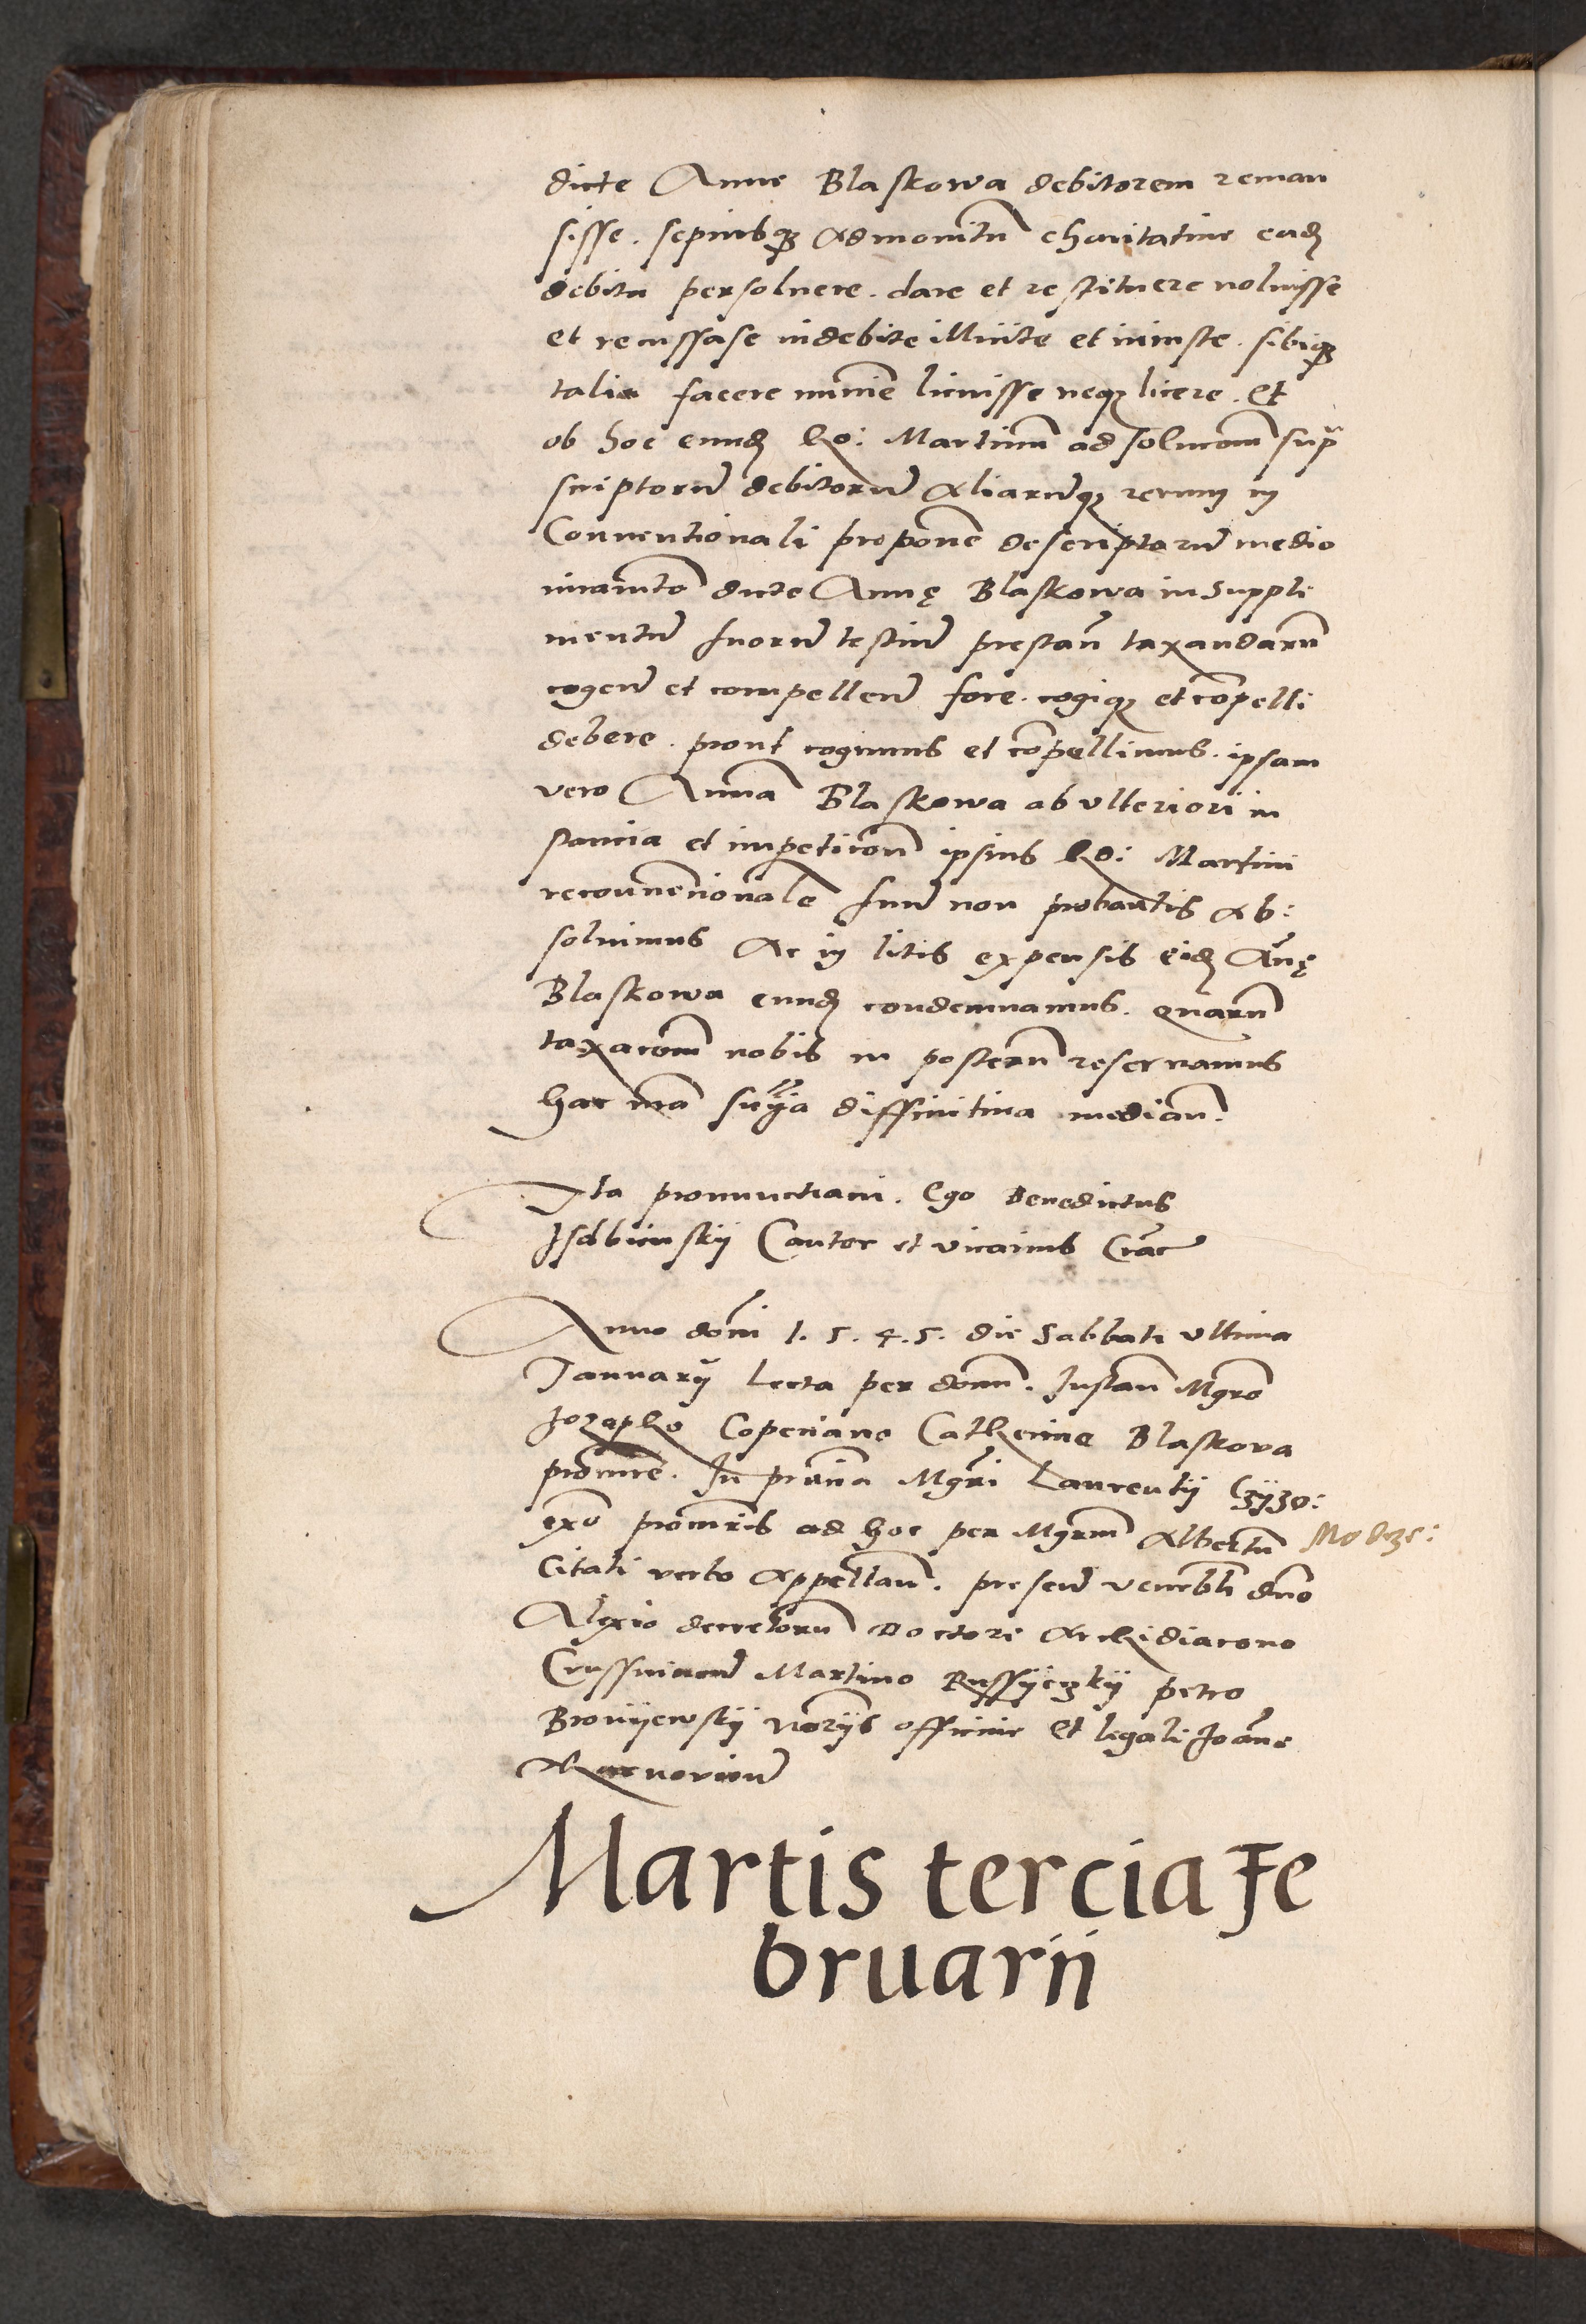 dicte Anne Blaskowa debitorem reman
sisse. sepiusq3 admonitu͂ charitatiue ead
debita persoluere. dare et restituere noluisse
et recussase indebite illicite et iniuste. sibiq3
talia facere minie͂ licuisse neq3 licere. Et
ob hoc eund Ro: Martinu͂ ad solucom͂ sup
scriptoru͂ debitoru͂ aliaru͂q3 rerum in
Conuentionali propone͂ descriptaru͂ medio
iuramto͂ dicte Annę Blaskowa in suppli
mentu͂ suoru͂ testiu͂ prestan͂ taxandaru͂
cogen͂ et compellen͂ fore. cogiq3 et co͂pelli
debere. prout cogimus et co͂pellimus. ipsam
vero Anna͂ Blaskowa ab vlteriori in
stancia et impeticon͂ ipsius Ro: Martini
reconuencionale͂ suu͂ non probantis ab:
soluimus Ac in litis expensis eid An͂ę
Blaskowa eund condemnamus. quaru͂
taxacom͂ nobis in posteru͂ reseruamus
hac nr͂a sn͂ia diffinitiua median͂.
Ita pronunctiaui. Ego Benedictus
Isdbienskij Cantor et vicarius Crac͂
Anno domi͂ 1.5.4.5. die Sabbati vltima
Januarij Lecta per dom͂. Instan͂ Mgro͂
Jozepho Coperiano Catherine Blaskova
procure͂. In pn͂cia Mgri͂ Laurentij Czyzo:
exo͂ procuris͂ ad hoc per Mgrm͂ Albertu͂ Modrze:
Citati verbo Appellan͂. presen͂ venerbli͂ dn͂o
Alexio decretoru͂ Doctore Archidiacono
Crussuicien͂ Martino Russyeczkij petro
Bronijewskij nor͂ijs officine et legali Joan͂e

Martis tercia Fe
bruarii